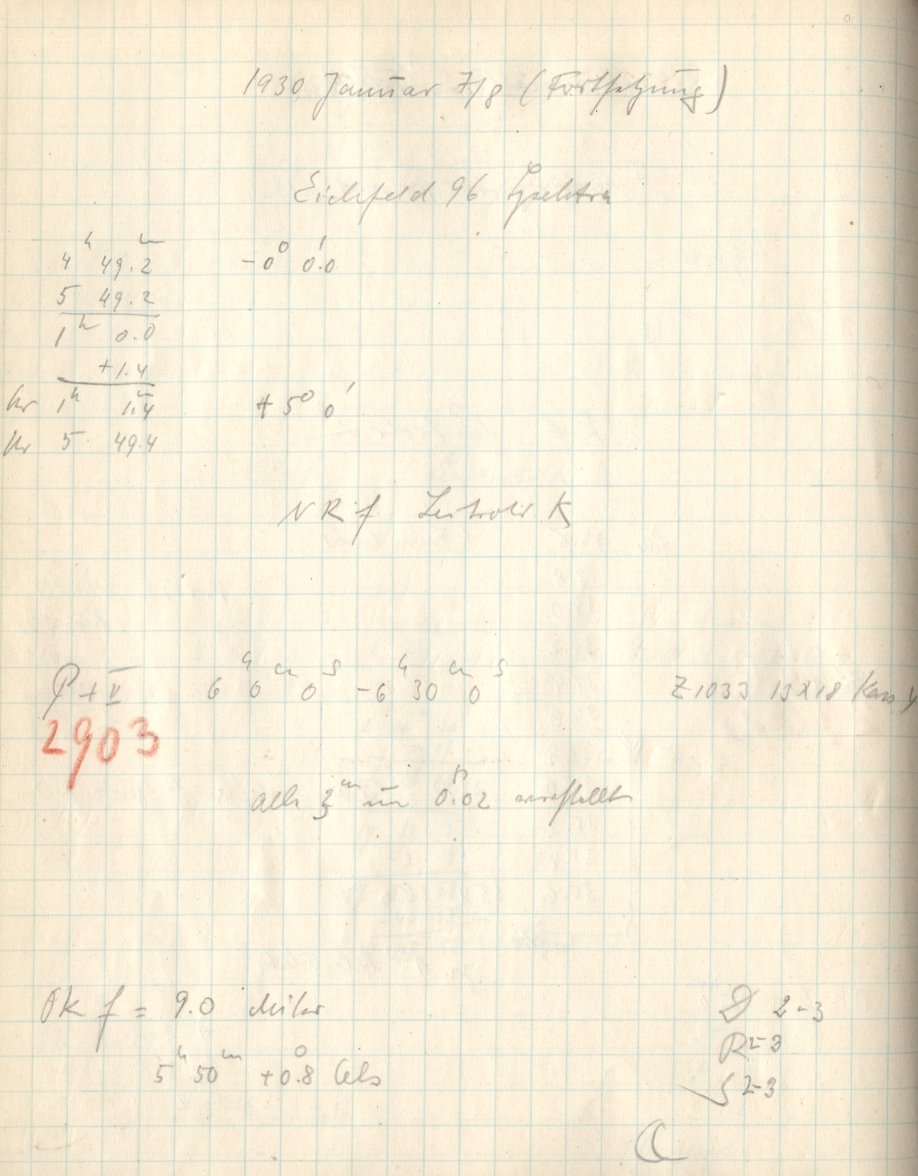 1930 Januar 7/8 (Fortsetzung)
Eichfeld 96 Spektra
4ʰ 49.2ᵐ -0° 0.0'
5 49.2
1ʰ 0.0
+1.4
Kr 1ʰ 1.4ᵐ + 5° 0'
Ur 5 49.4
NR f Leitrohr K
P + V
6ʰ 0ᵐ 0ˢ - 6ʰ 30ᵐ 0ˢ
Z 1033 13x18
2903
alle 3ᵐ um 0.02 verstellt
OK f = 9.0
5ʰ 50ᵐ +0.8° Cels
2-3
R 2-3
S 2-3